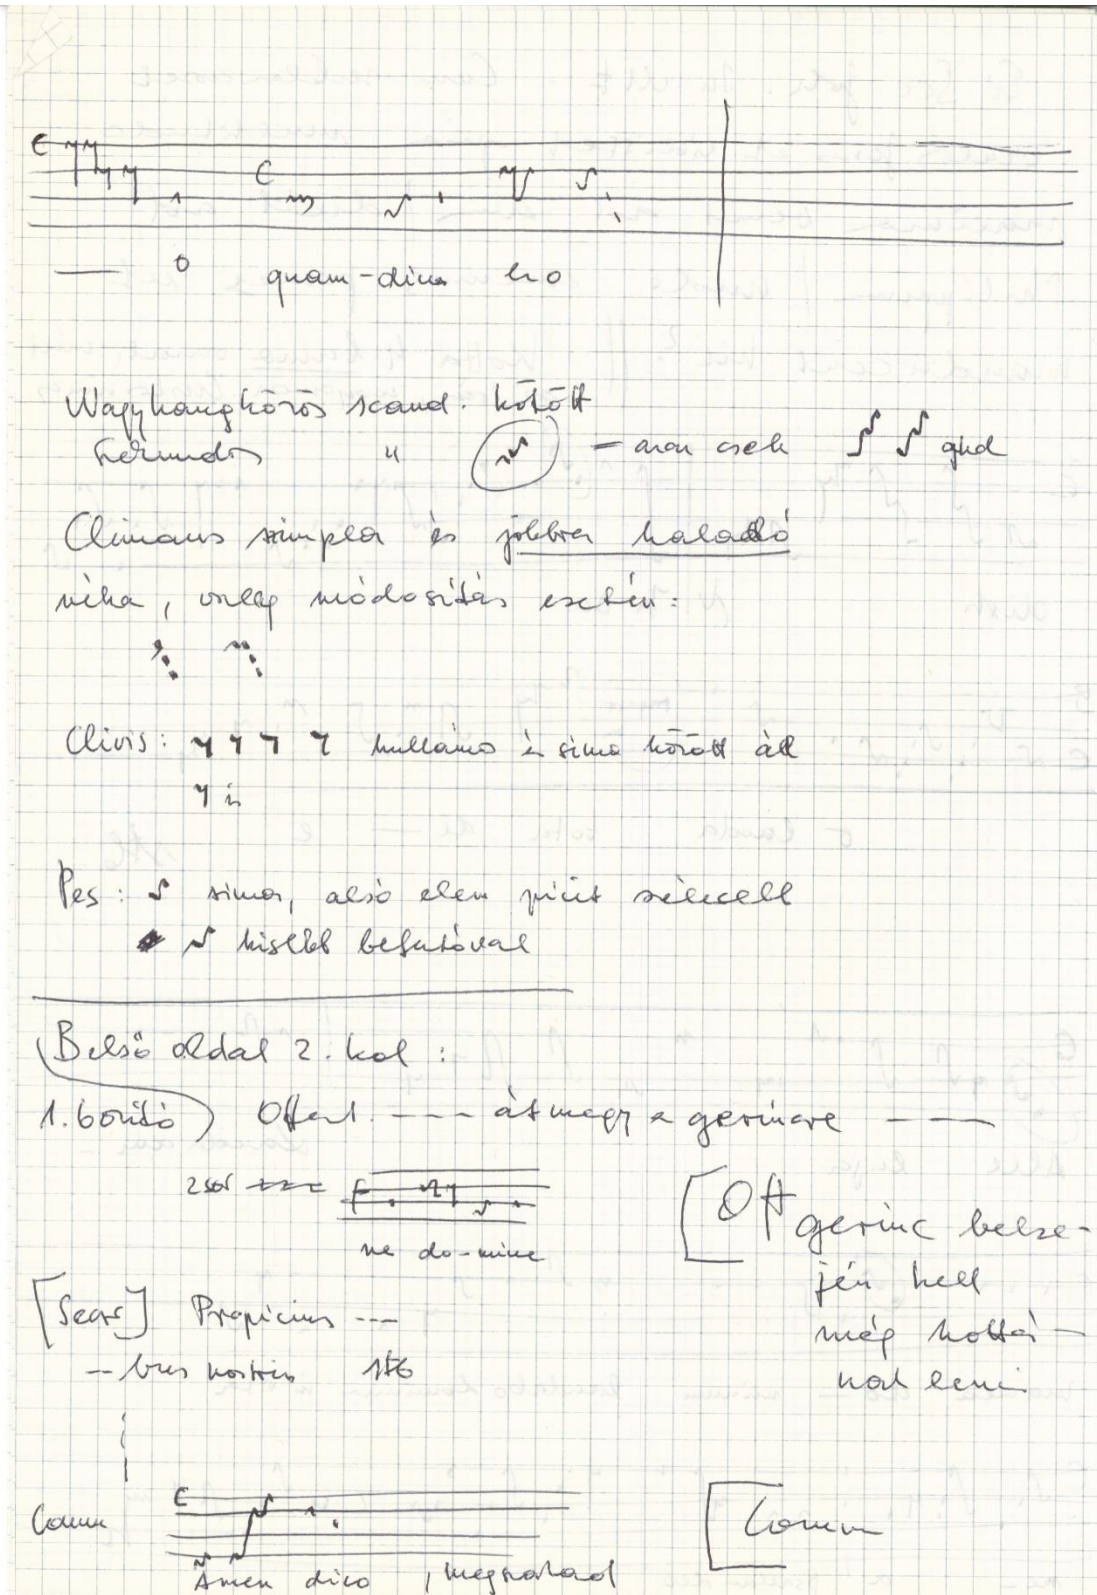 C C
o quam-diu
Nagyhangkörös scand. kötött
Szekundos " — arar csek qud
Climacus simplex és jobbra haladó
néha, vszleg módosítás esetén:
Clivis: hullámos és sima között áll
is
Pes: sima, alsó elem picit
kisebb befutóval
Belső oldal 2. kol:
1. borító) Offert. ---- átmegy a gerincre ----
2 sor F
ne do-mine
[Off gerinc belse-
jén kell
még kottá-
nak lenni
[Secr] Propicius ---
-- bus nostris 156
Comm C
Amen dico , megszakad
[Comm